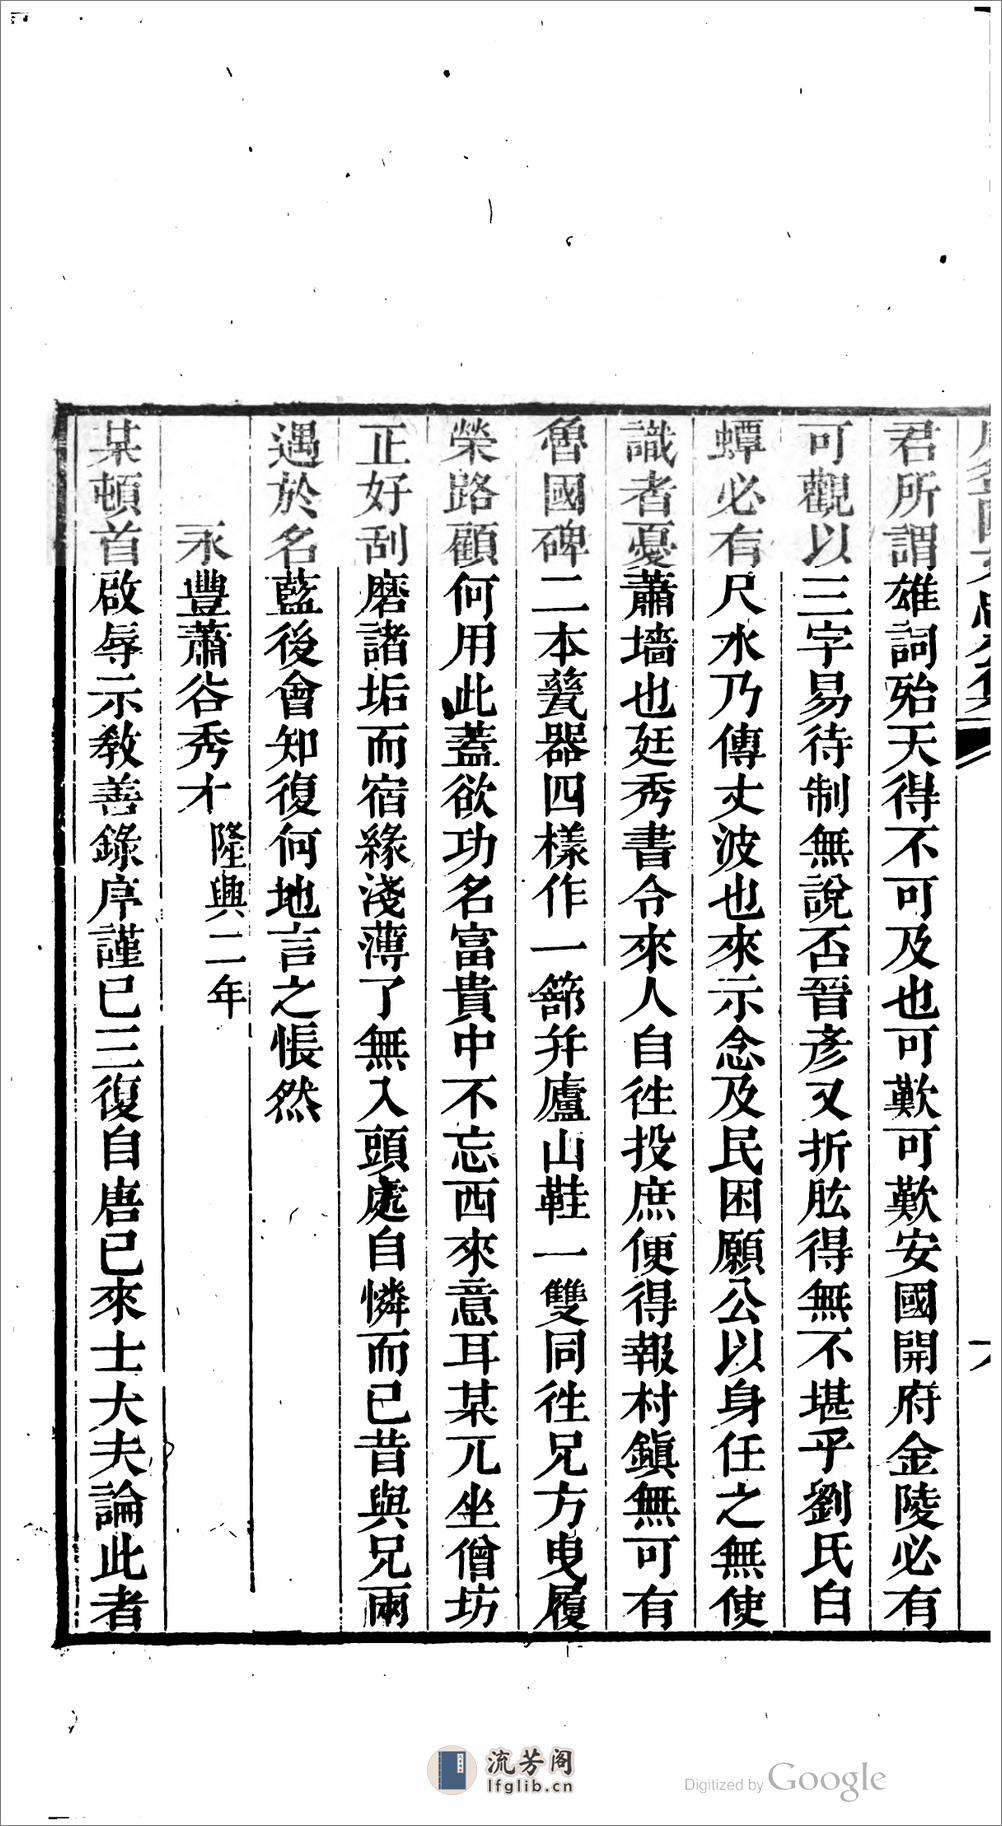 君所謂雄詞殆天得不可及也可歎可歎安國開府金陵必有
可觀以三字易待制無說否晉彥又折肱得無不堪乎劉氏白
蟫必有尺水乃傳丈波也來示念及民困願公以身任之無使
識者憂蕭墻也廷秀書令來人自徃投庶便得報村鎮無可有
魯國碑二本甆器四樣作一篰幷廬山鞋一雙同徃兄方曳履
榮路顧何用此蓋欲功名富貴中不忘西來意耳某兀坐僧坊
正好刮磨諸垢而宿緣淺薄了無入頭處自憐而已昔與兄兩
遇於名藍後會知復何地言之悵然
永豐蕭谷秀才 隆興二年
某頓首啟辱示敎善錄序謹已三復自唐已來士大夫論此者
流芳阁
lfglib.cn
Digitized by Google